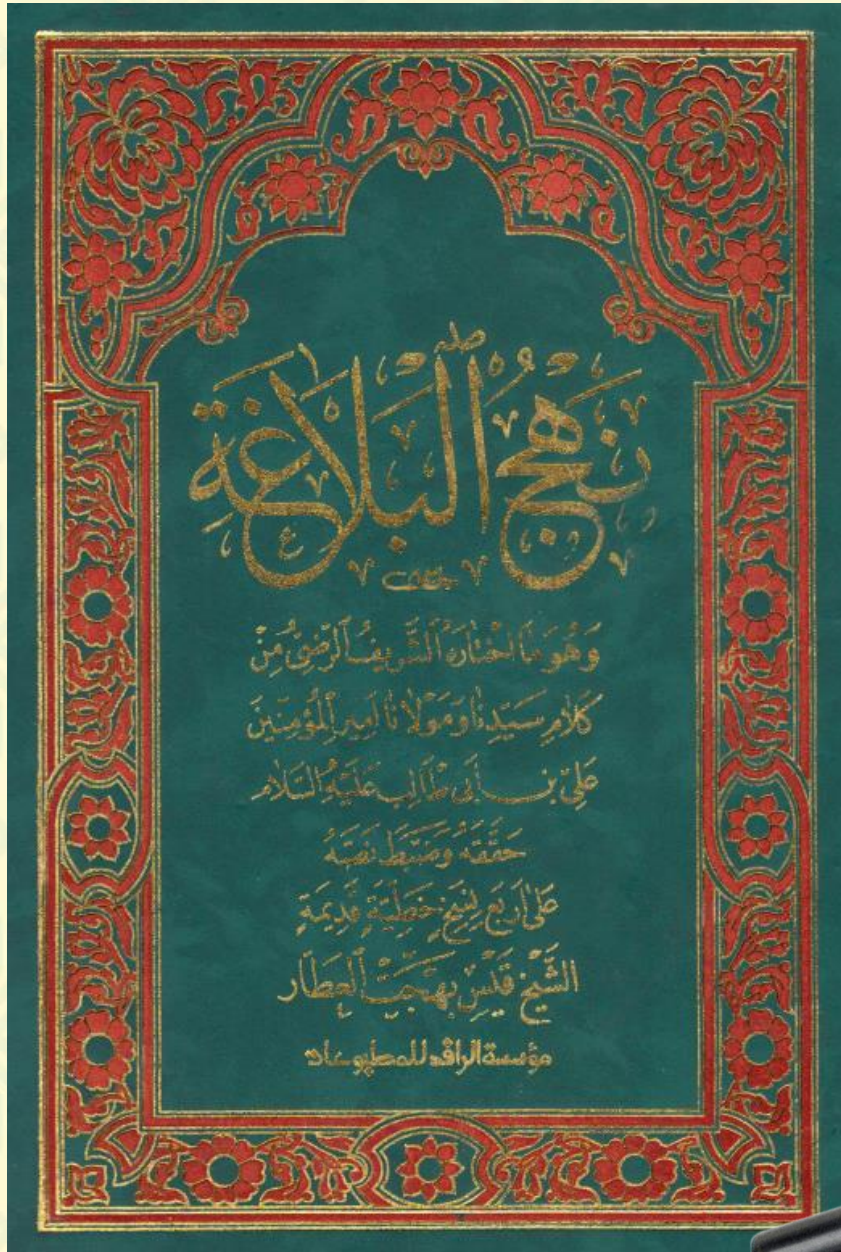 نَهْجُ ٱلْبَلَاغَةِ
وَهُوَ مَا اخْتَارَهُ ٱلشَّرِيفُ ٱلرَّضِيُّ مِنْ
كَلَامِ سَيِّدِنَا وَمَوْلَانَا أَمِيرِ ٱلْمُؤْمِنِينَ
عَلِيِّ بْنِ أَبِي طَالِبٍ عَلَيْهِ السَّلَامُ
حَقَّقَهُ وَضَبَطَ نَصَّهُ
عَلَى أَرْبَعِ نُسَخٍ خَطِّيَّةٍ قَدِيمَةٍ
الشَّيْخ قَيْس بَهْجَت ٱلْعَطَّار
مؤسسة الرافد للمطبوعات